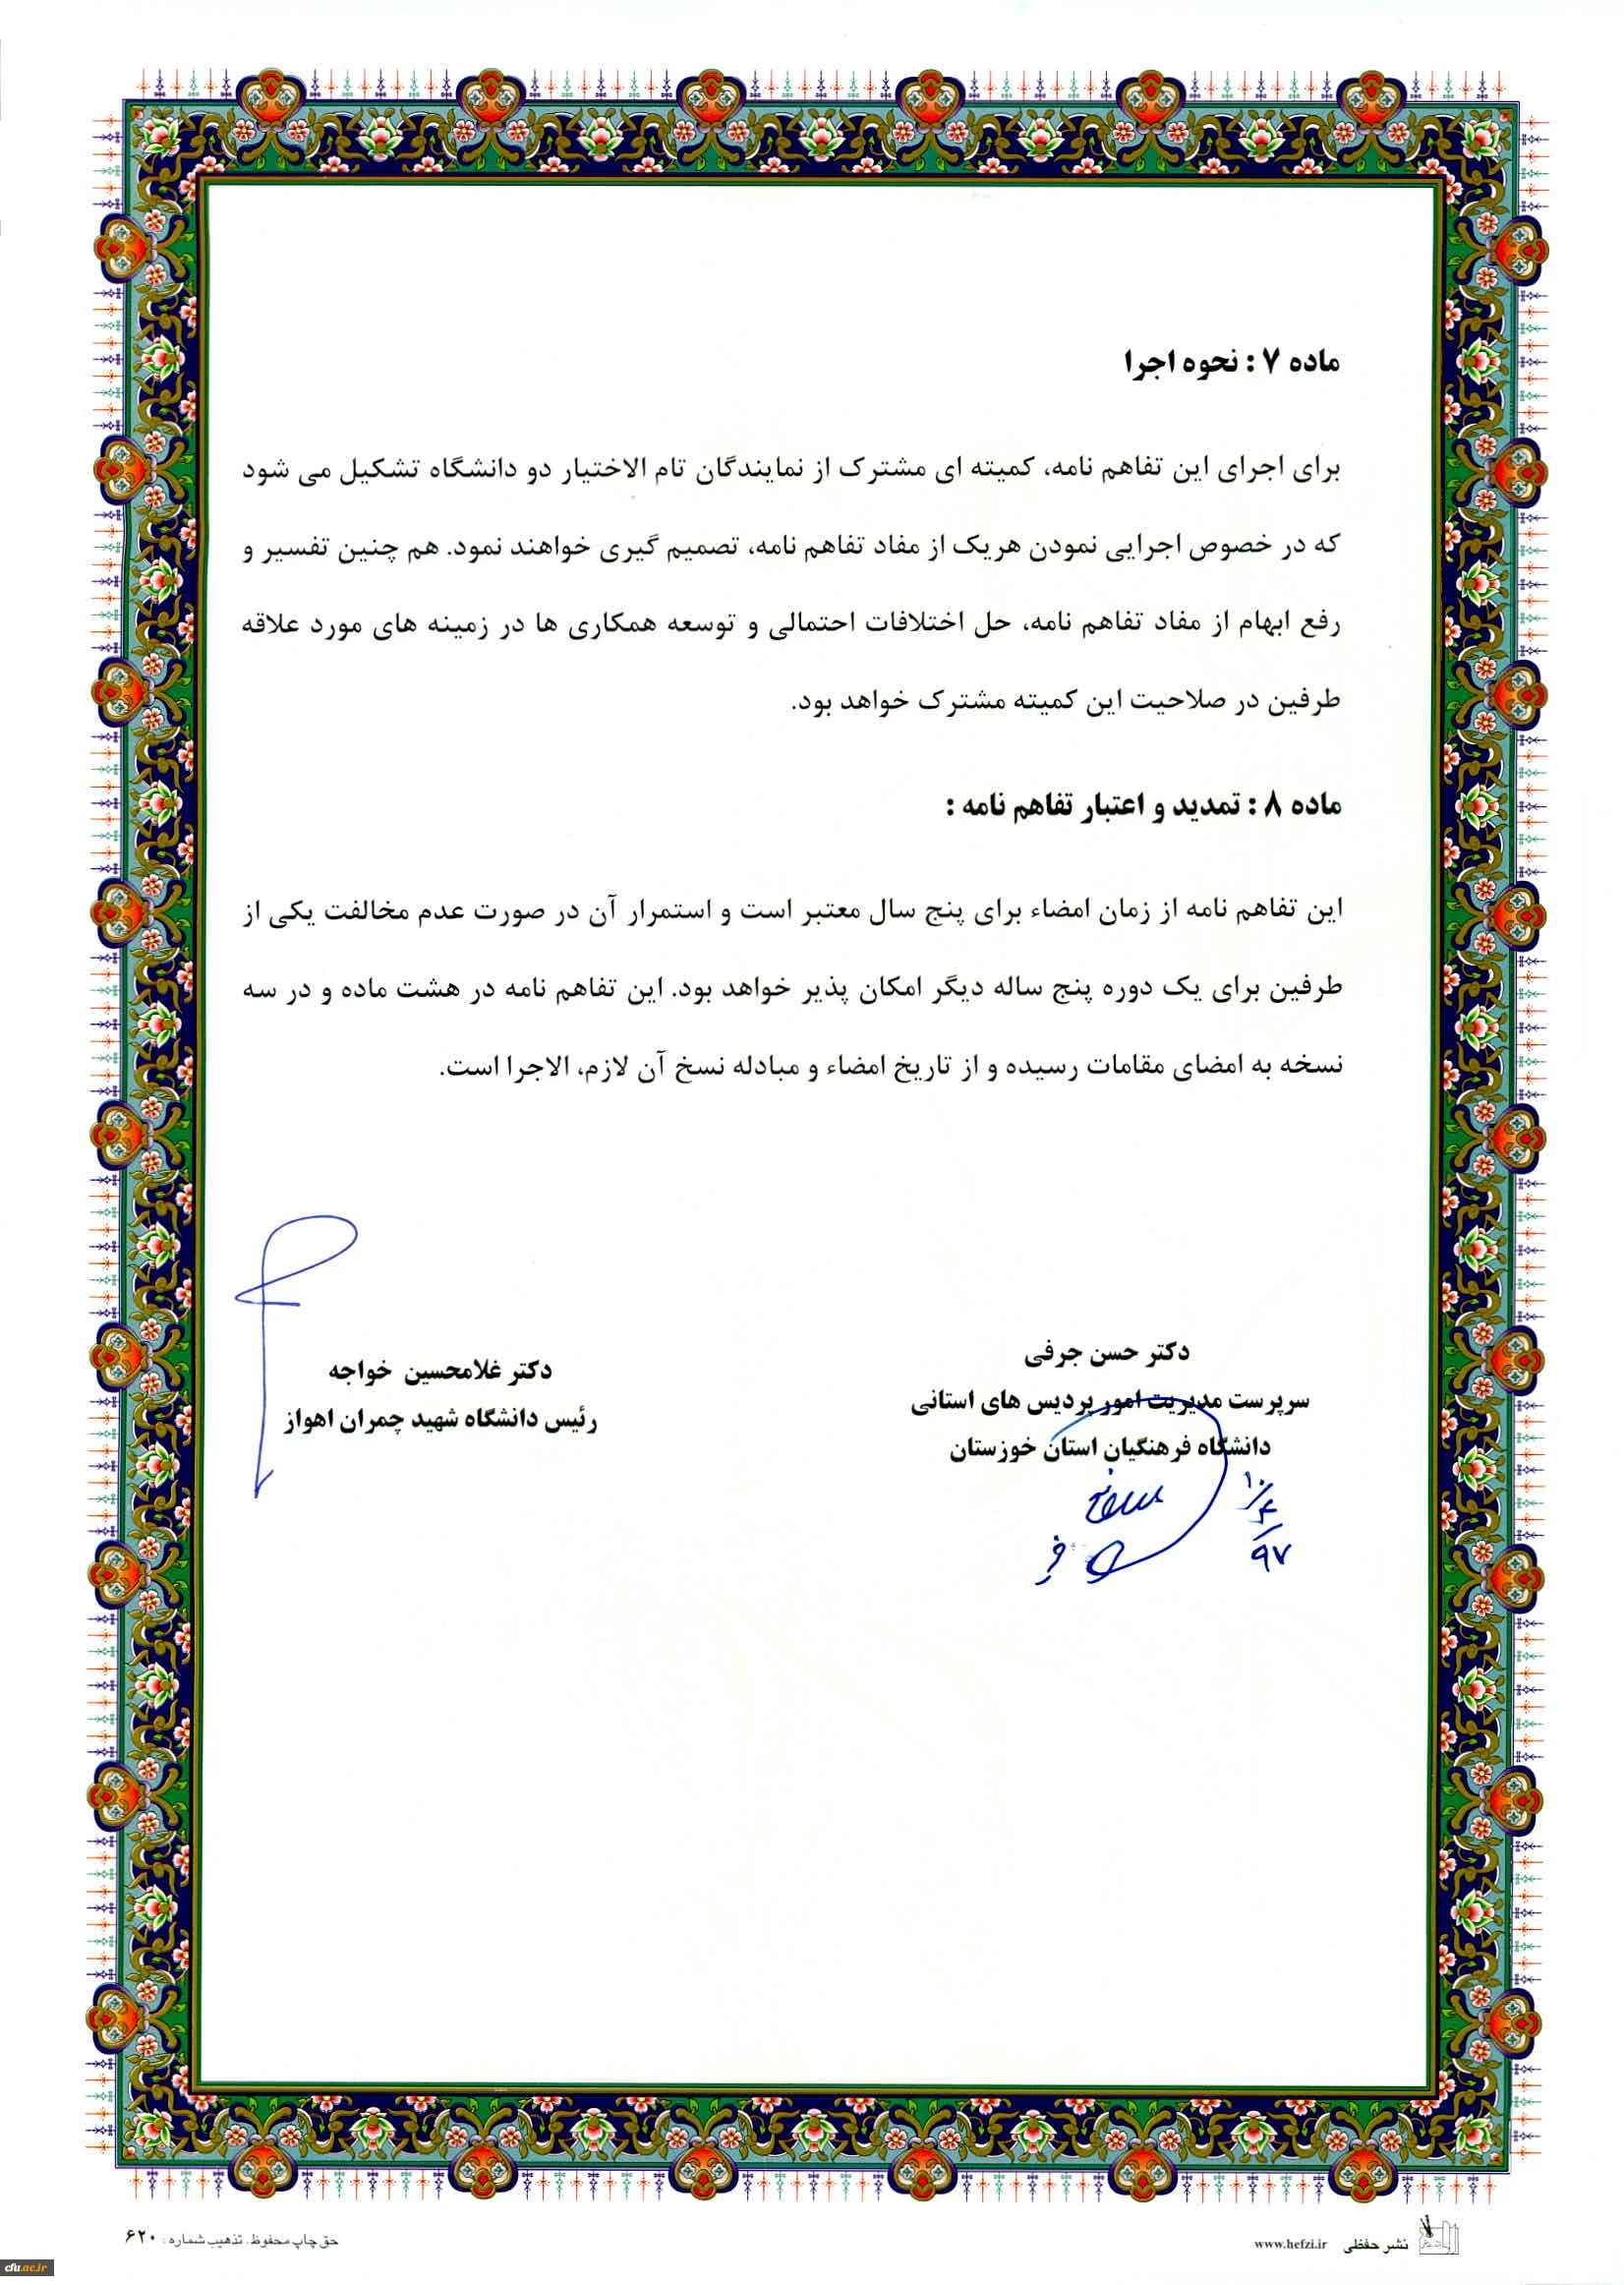 ماده ۷ : نحوه اجرا
برای اجرای این تفاهم نامه، کمیته ای مشترک از نمایندگان تام الاختیار دو دانشگاه تشکیل می شود
که در خصوص اجرایی نمودن هریک از مفاد تفاهم نامه، تصمیم گیری خواهند نمود. هم چنین تفسیر و
رفع ابهام از مفاد تفاهم نامه، حل اختلافات احتمالی و توسعه همکاری ها در زمینه های مورد علاقه
طرفین در صلاحیت این کمیته مشترک خواهد بود.
ماده ۸ : تمدید و اعتبار تفاهم نامه :
این تفاهم نامه از زمان امضاء برای پنج سال معتبر است و استمرار آن در صورت عدم مخالفت یکی از
طرفین برای یک دوره پنج ساله دیگر امکان پذیر خواهد بود. این تفاهم نامه در هشت ماده و در سه
نسخه به امضای مقامات رسیده و از تاریخ امضاء و مبادله نسخ آن لازم، الاجرا است.
دکتر حسن جرفی
سرپرست مدیریت امور پردیس های استانی
دانشگاه فرهنگیان استان خوزستان
دکتر غلامحسین خواجه
رئیس دانشگاه شهید چمران اهواز
نشر حفظی www.hefzi.ir
حق چاپ محفوظ. تذهیب شماره : ۶۲۰
cfu.ac.ir